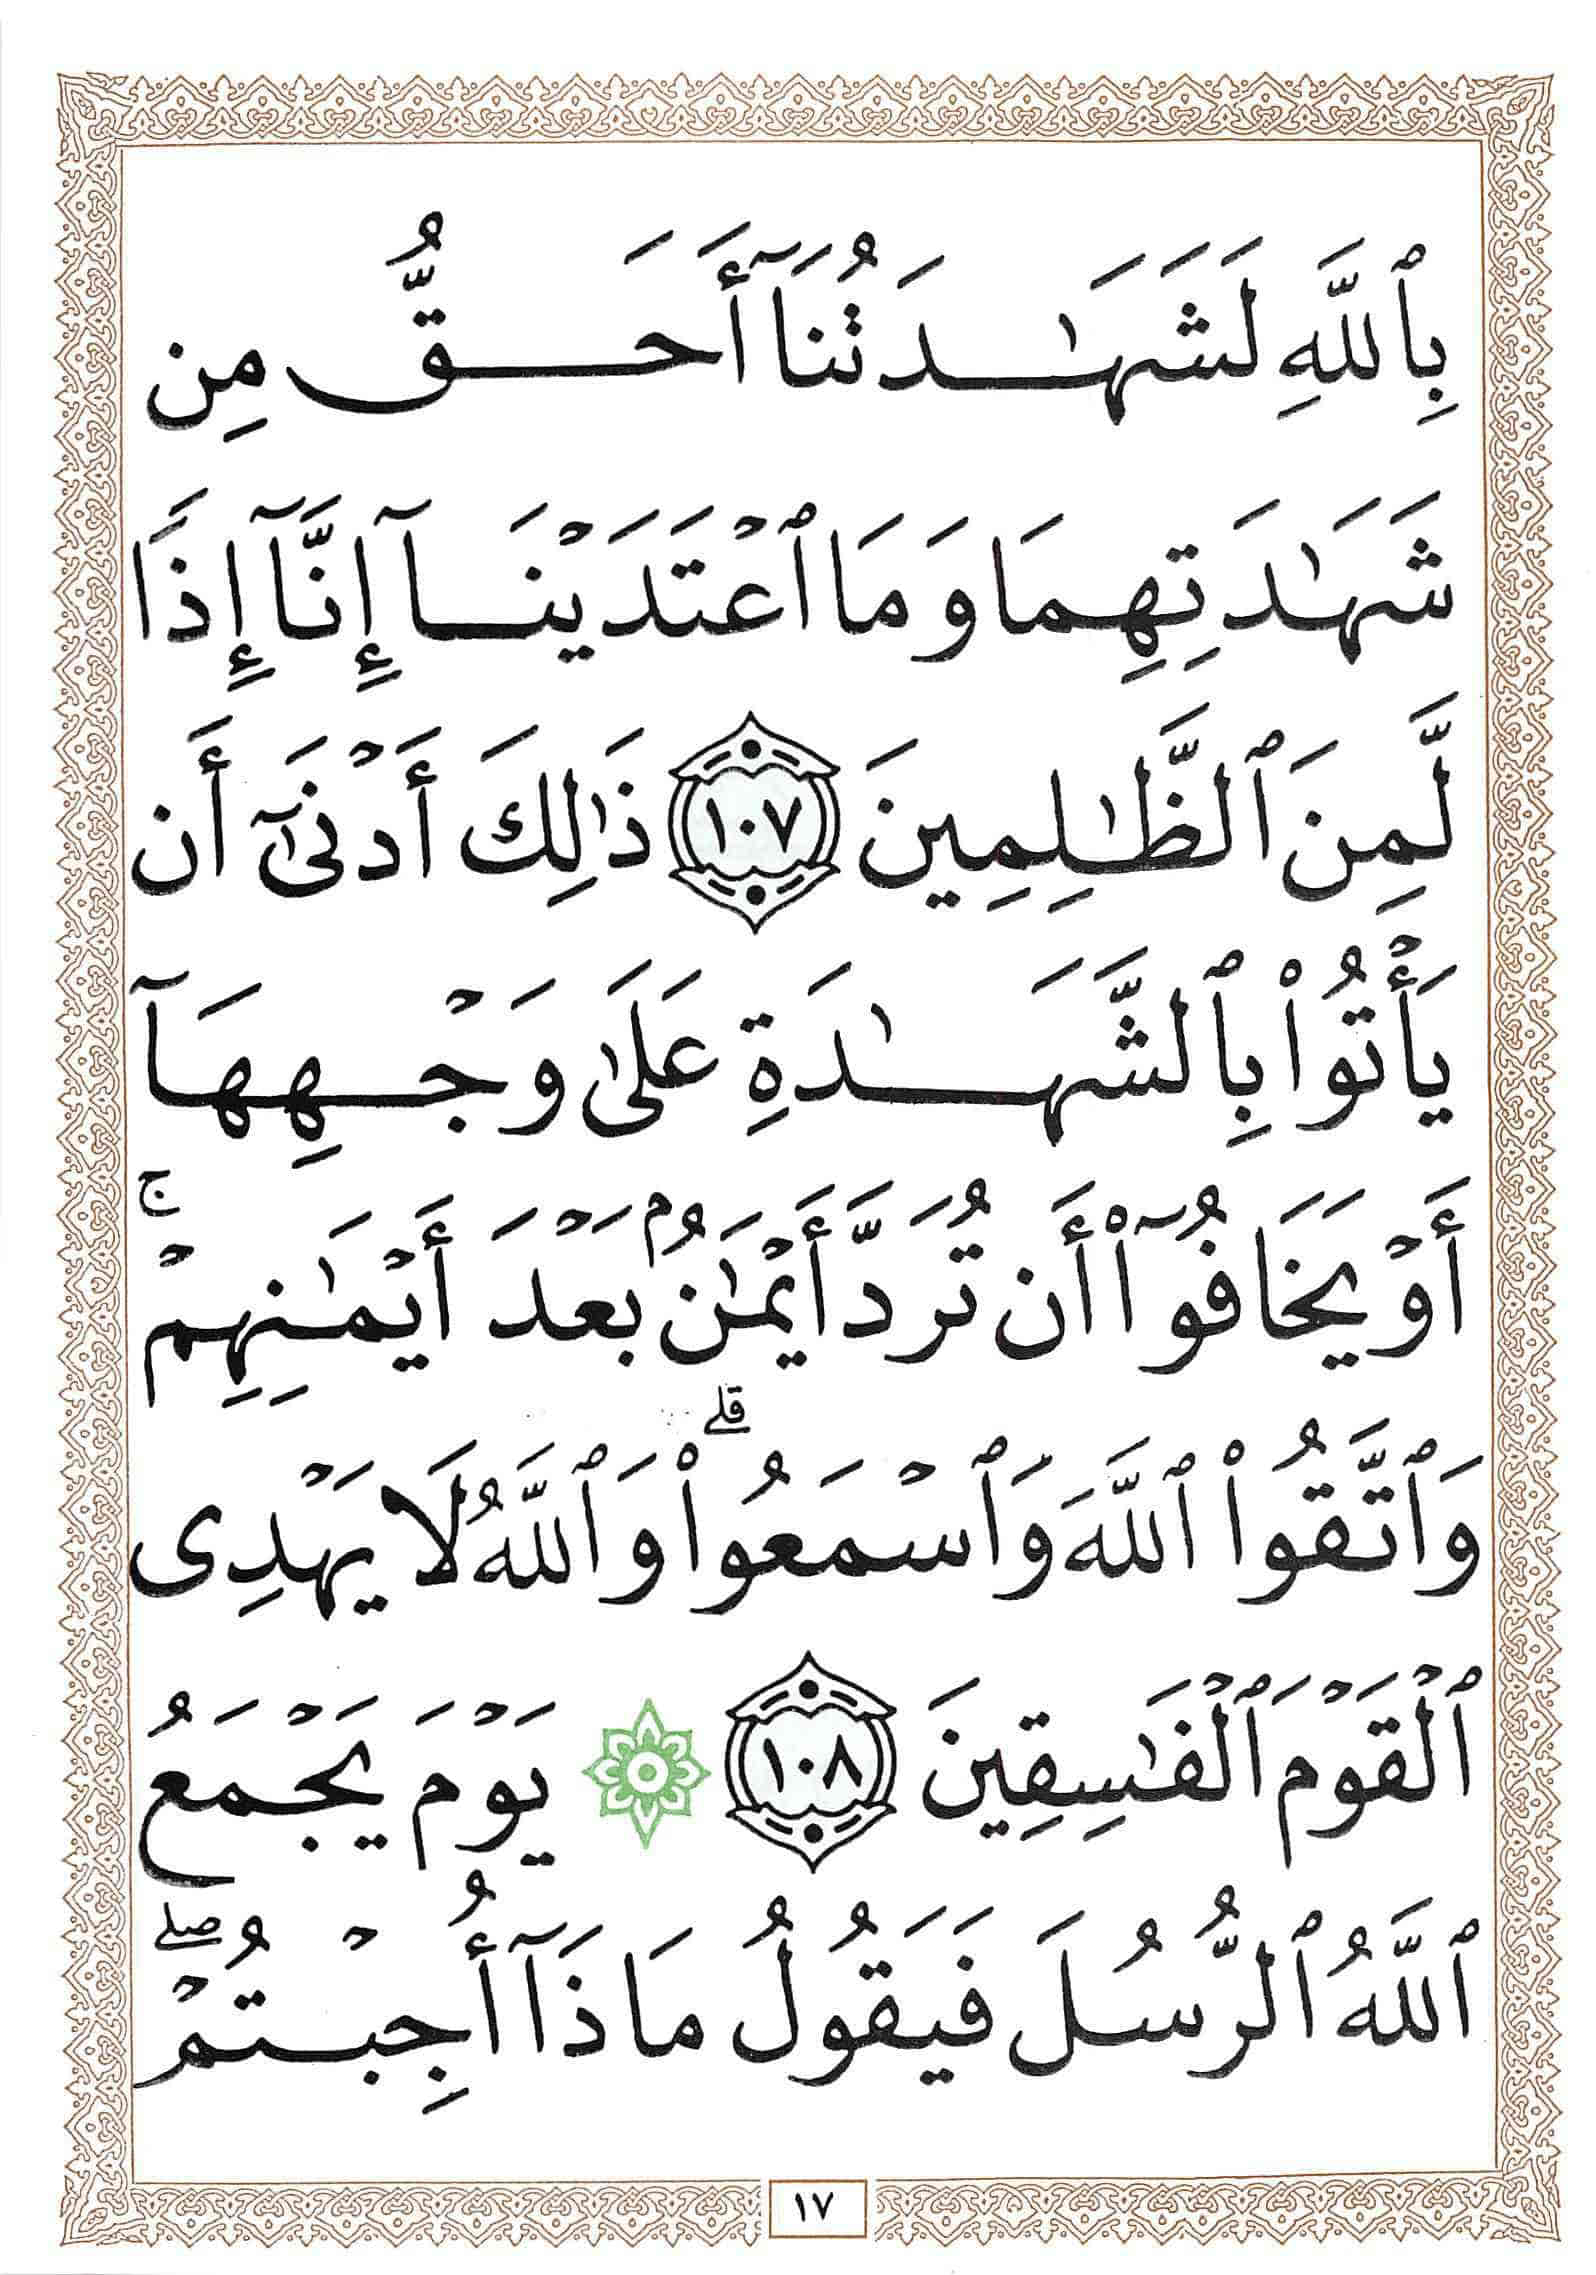 بِٱللَّهِ لَشَهَـٰدَتُنَآ أَحَقُّ مِن
شَهَـٰدَتِهِمَا وَمَا ٱعْتَدَيْنَآ إِنَّآ إِذًا
لَّمِنَ ٱلظَّـٰلِمِينَ ١٠٧ ذَٰلِكَ أَدْنَىٰٓ أَن
يَأْتُوا۟ بِٱلشَّهَـٰدَةِ عَلَىٰ وَجْهِهَآ
أَوْ يَخَافُوٓا۟ أَن تُرَدَّ أَيْمَـٰنٌۢ بَعْدَ أَيْمَـٰنِهِمْ ۚ
وَٱتَّقُوا۟ ٱللَّهَ وَٱسْمَعُوا۟ ۗ وَٱللَّهُ لَا يَهْدِى
ٱلْقَوْمَ ٱلْفَـٰسِقِينَ ١٠٨ ۞ يَوْمَ يَجْمَعُ
ٱللَّهُ ٱلرُّسُلَ فَيَقُولُ مَاذَآ أُجِبْتُمْ ۖ
١٧